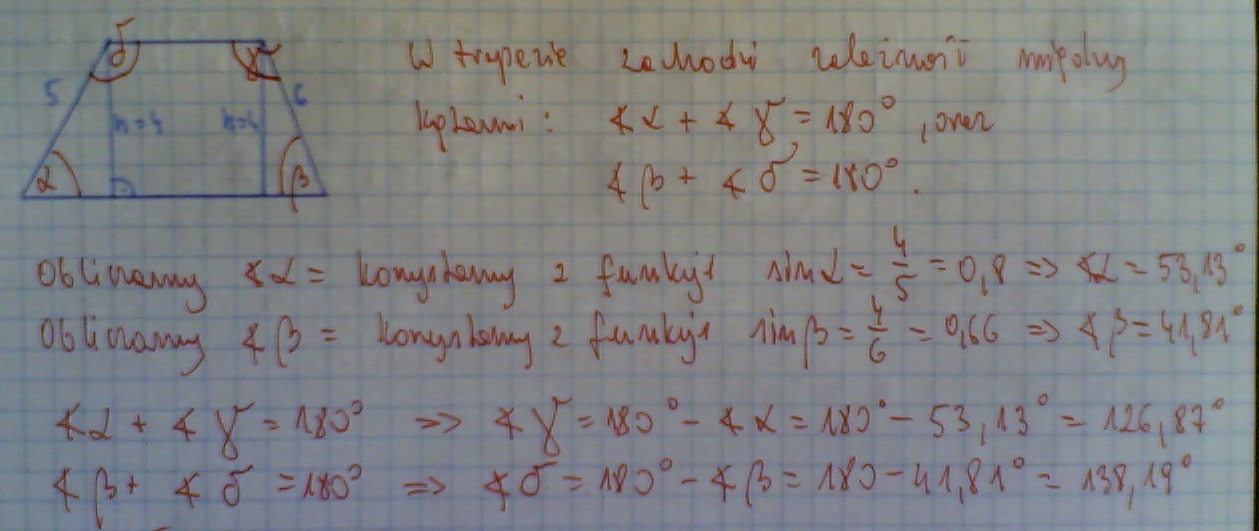 δ γ
5 h=4 h=4 6
α β
W trapezie zachodzi zależność między
kątami: ∢α + ∢γ = 180°, oraz
∢β + ∢δ = 180°.
Obliczamy ∢α = korzystamy z funkcji sinα = 4/5 = 0,8 => ∢α = 53,13°
Obliczamy ∢β = korzystamy z funkcji sinβ = 4/6 = 0,66 => ∢β = 41,81°
∢α + ∢γ = 180° => ∢γ = 180° - ∢α = 180° - 53,13° = 126,87°
∢β + ∢δ = 180° => ∢δ = 180° - ∢β = 180 - 41,81° = 138,19°